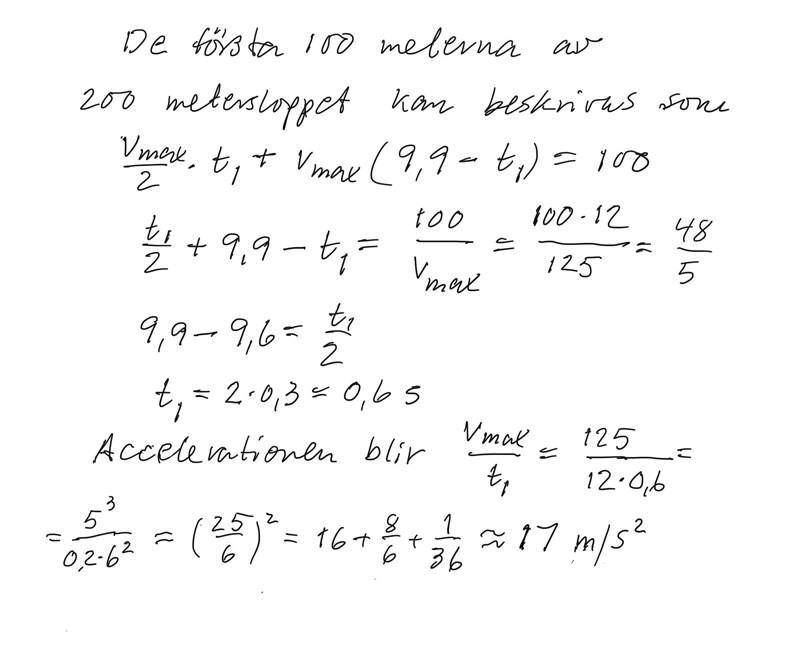 De första 100 meterna av
200 metersloppet kan beskrivas som
Vmax/2 · t₁ + Vmax (9,9 - t₁) = 100
t₁/2 + 9,9 - t₁ = 100/Vmax = 100·12/125 = 48/5
9,9 - 9,6 = t₁/2
t₁ = 2·0,3 = 0,6 s
Accelerationen blir Vmax/t₁ = 125/12·0,6 =
= 5³/0,2·6² = (25/6)² = 16 + 8/6 + 1/36 ≈ 17 m/s²